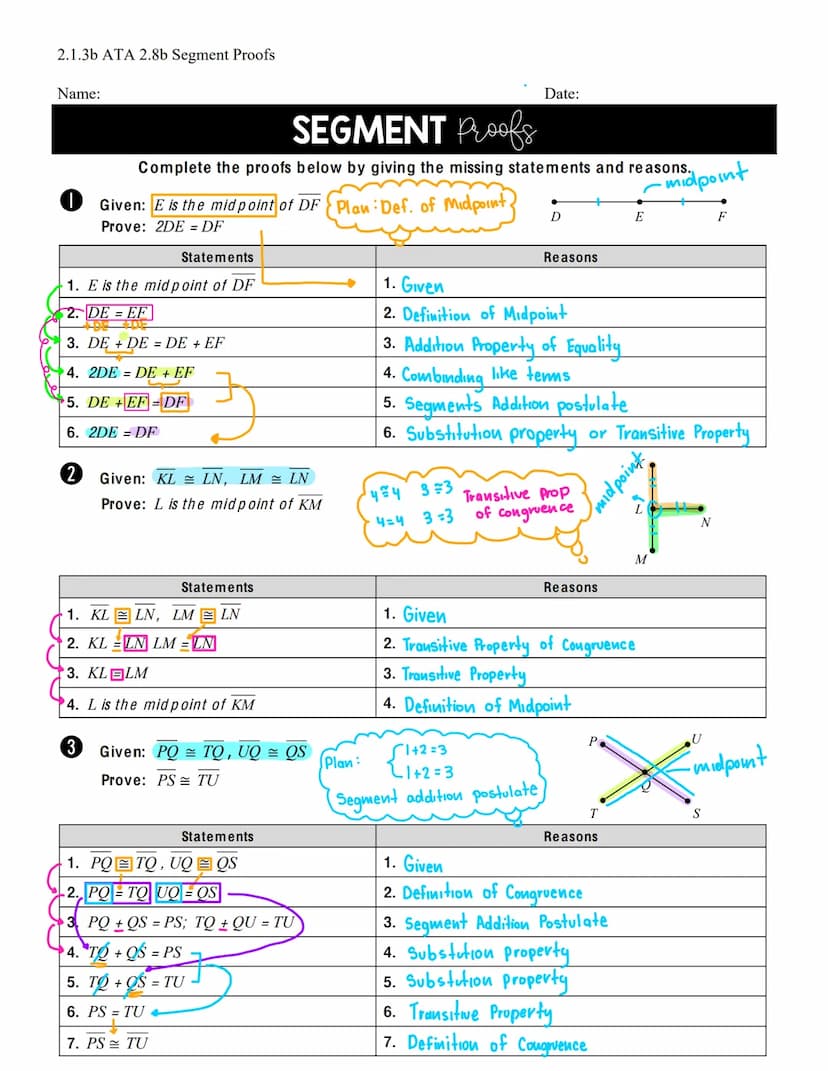 2.1.3b ATA 2.8b Segment Proofs
Name: Date:
SEGMENT Proofs
Complete the proofs below by giving the missing statements and reasons.
midpoint
1 Given: E is the midpoint of DF
Plan: Def. of Midpoint
D E F
Prove: 2DE = DF
Statements Reasons
1. E is the midpoint of DF 1. Given
2. DE = EF 2. Definition of Midpoint
+DE +DE
3. DE + DE = DE + EF 3. Addition Property of Equality
4. 2DE = DE + EF 4. Combinding like terms
5. DE + EF = DF 5. Segments Addition postulate
6. 2DE = DF 6. Substitution property or Transitive Property
2 Given: KL ≅ LN, LM ≅ LN
Prove: L is the midpoint of KM
4≅4 3≅3 Transitive Prop
4=4 3=3 of congruence
midpoint
K
L
N
M
Statements Reasons
1. KL ≅ LN, LM ≅ LN 1. Given
2. KL = LN LM = LN 2. Transitive Property of Congruence
3. KL = LM 3. Transitive Property
4. L is the midpoint of KM 4. Definition of Midpoint
3 Given: PQ ≅ TQ, UQ ≅ QS
Prove: PS ≅ TU
Plan: 1+2=3
1+2=3
Segment addition postulate
P U
midpoint
Q
T S
Statements Reasons
1. PQ ≅ TQ, UQ ≅ QS 1. Given
2. PQ = TQ UQ = QS 2. Definition of Congruence
3. PQ + QS = PS; TQ + QU = TU 3. Segment Addition Postulate
4. TQ + QS = PS 4. Substution property
5. TQ + QS = TU 5. Substution property
6. PS = TU 6. Transitive Property
7. PS ≅ TU 7. Definition of Congruence